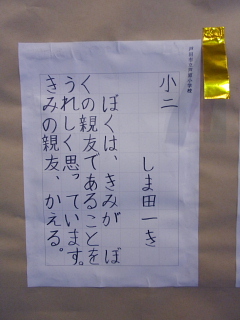 小二
しま田一き
ぼくは、きみが ぼ
くの親友であることを
うれしく思っています。
きみの親友、かえる。